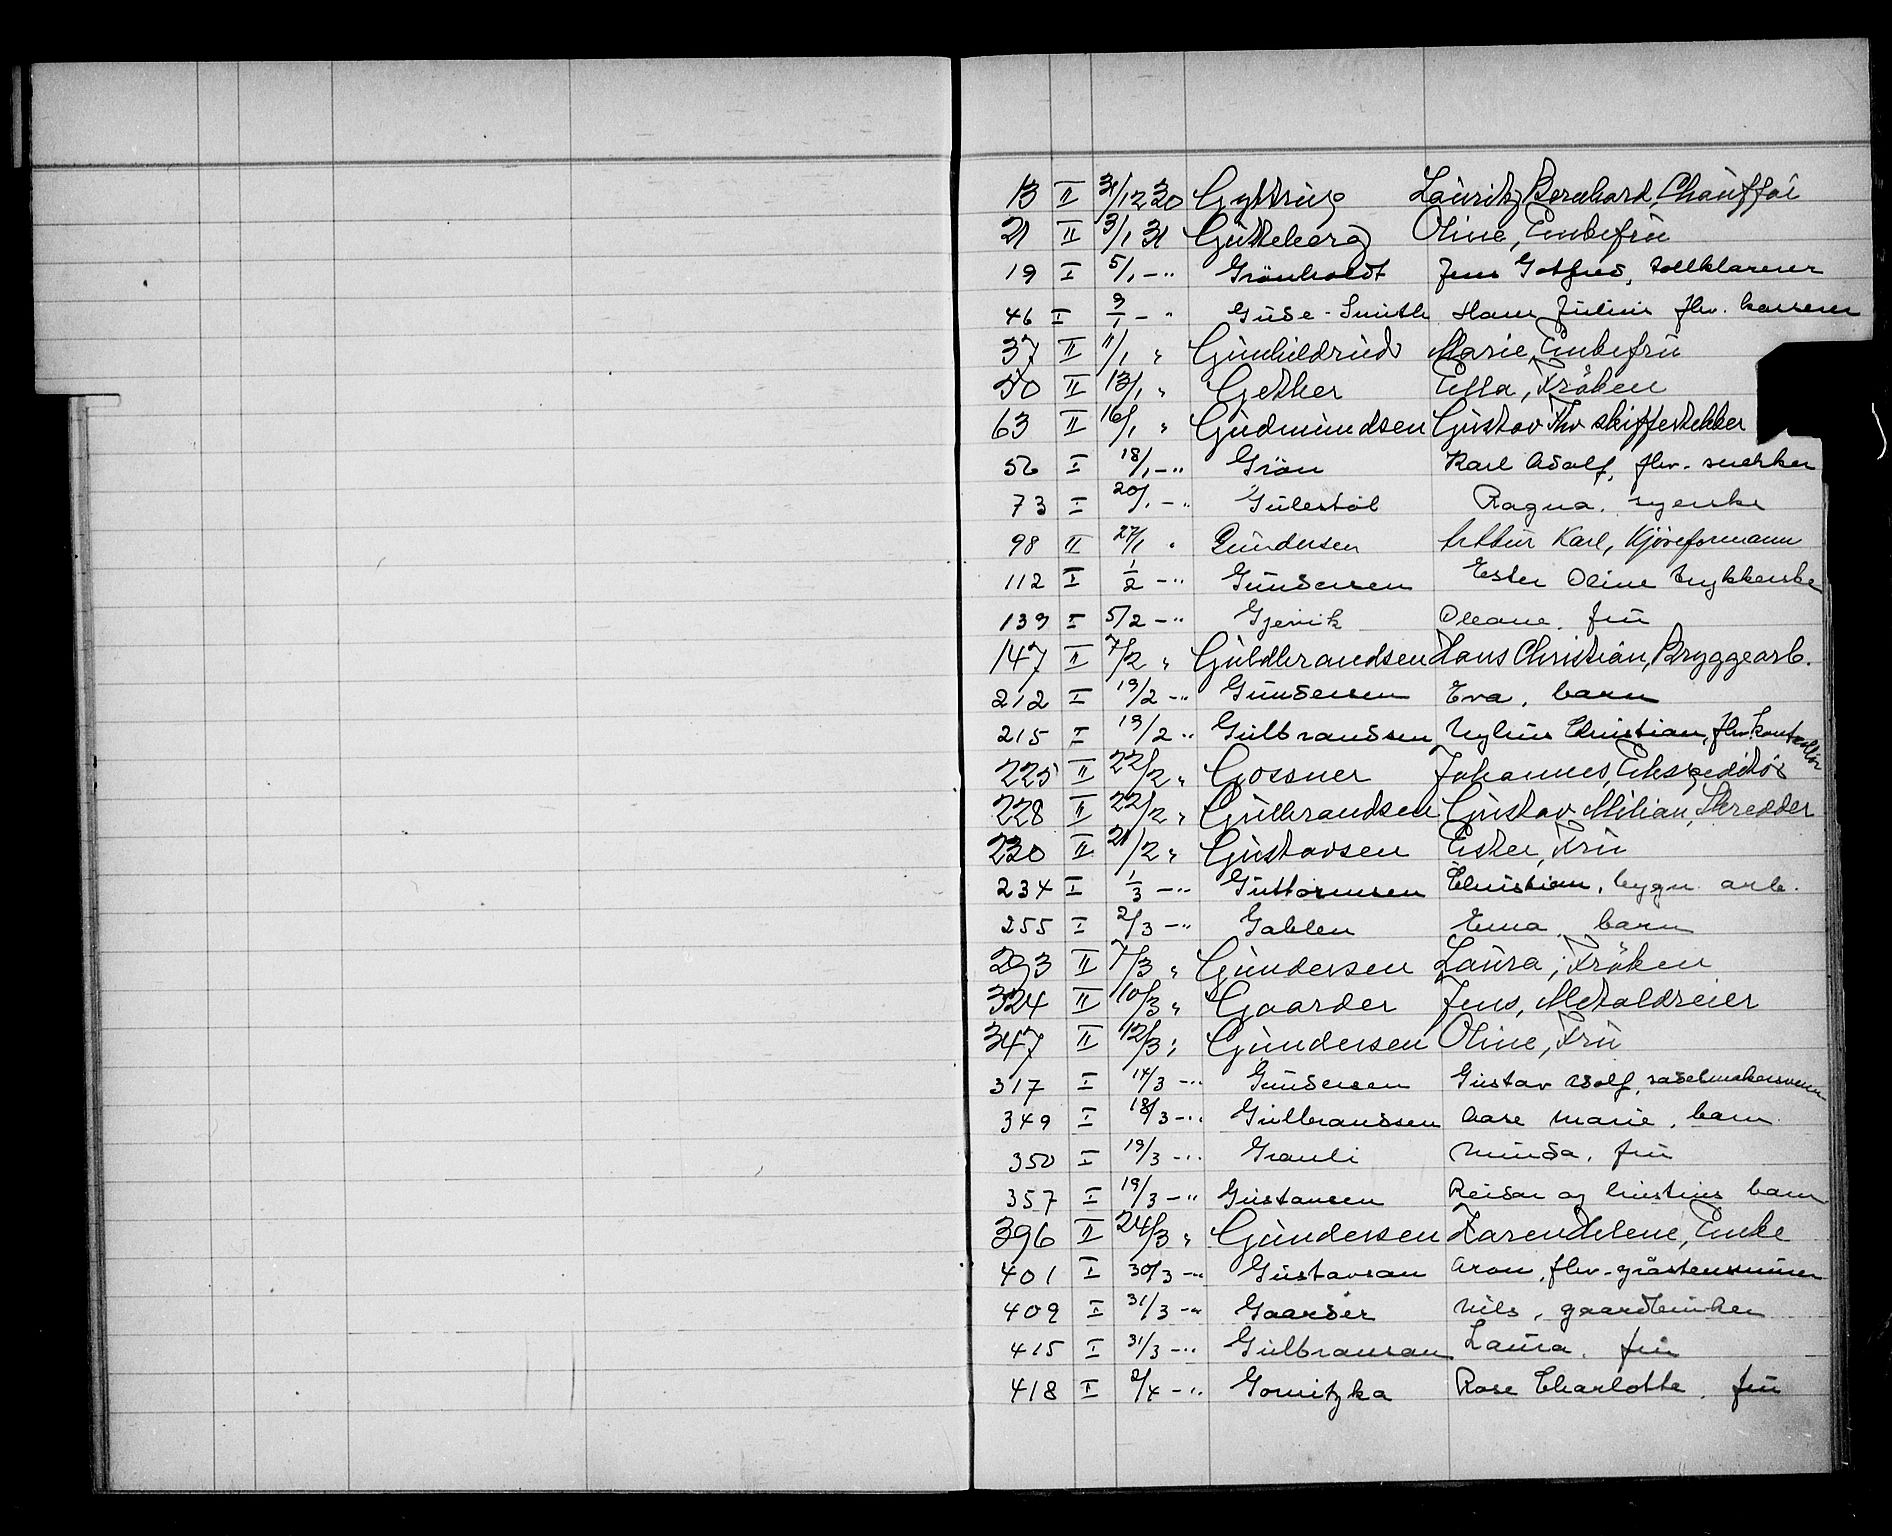 13 II 31/12 30 Gyltrup Lauritz Bernhard, Chauffør
21 II 3/1 31 Gutteberg Oline, Enkefru
19 I 5/1 -" Grönholdt Jens Gotfred, tollklarerer
46 I 9/1 - " Gude-Smith Hans Julius fhv. kasserer
37 II 11/1 " Gunhildrud Marie, Enkefru
50 II 13/1 " Gether Ella, Fröken
63 II 16/1 " Gudmundsen Gustav Thv skiffertekker
56 I 18/1 -" Grön Karl Adolf, fhv. snekker
73 I 20/1 -" Gulestöl Ragna, syerske
98 II 27/1 " Gundersen Arthur Karl, Kjöreformann
112 I 1/2 -" Gundersen Ester Oline trykkerske
139 I 5/2 -" Gjervik Oleane, fru
147 II 7/2 " Guldbrandsen Hans Christian, Bryggearb.
212 I 19/2 -" Gundersen Eva, barn
215 I 19/2 " Gulbrandsen Nylius Christian, fhv. kontrollör
225 II 22/2 " Gossner Johannes, Ekspeditör
228 II 22/2 " Gulbrandsen Gustav Milian, Skredder
230 II 21/2 " Gustavsen Ester, Fru
234 I 1/3 -" Guttormsen Christian, bygn. arb.
255 I 2/3 -" Gablen Erna, barn
293 II 7/3 " Gundersen Laura, Fröken
324 II 10/3 " Gaarder Jens, Metaldreier
347 II 12/3 " Gundersen Oline, Fru
317 I 14/3 -" Gundersen Gustav Adolf, sadelmakersvenn
349 I 18/3 -" Gulbrandsen Aase Marie, barn
350 I 19/3 -" Granli Minda, fru
357 I 19/3 -" Gustavsen Reidar og barn
396 II 24/3 " Gundersen Karen Helene, Enke
401 I 30/3 -" Gustavson Aron, fhv. gråstensmurer
409 I 31/3 -" Gaarder Nils, gaardbruker
415 I 31/3 -" Gulbranson Laura, fru
418 I 2/4 -" Gomitzka Rose Charlotte, fru